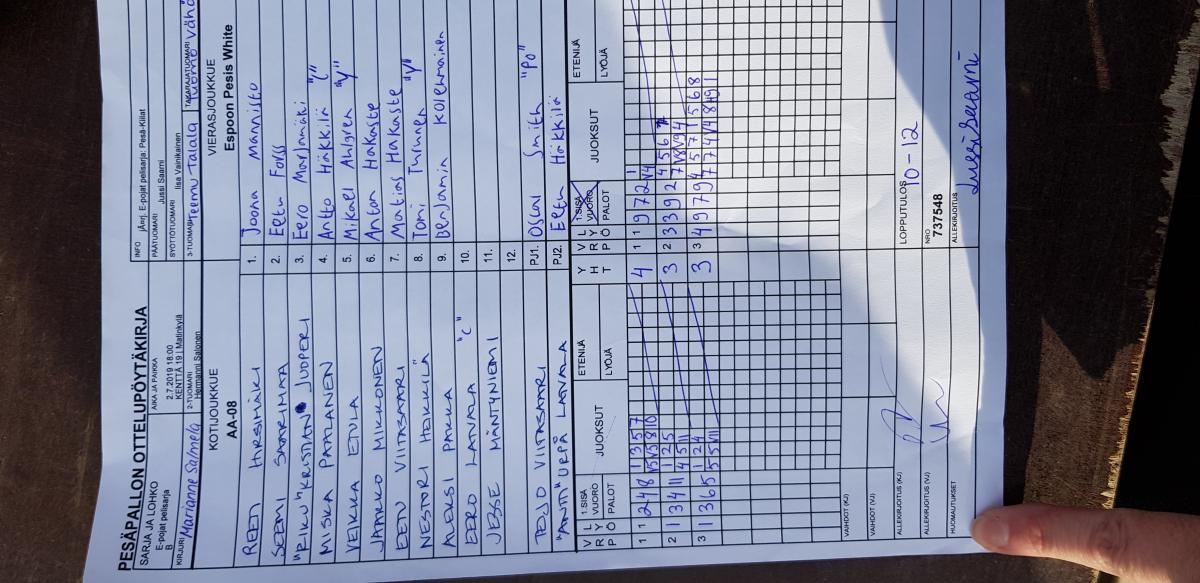 PESÄPALLON OTTELUPÖYTÄKIRJA
SARJA JA LOHKO
E-pojat pelisarja
B
AIKA JA PAIKKA
2.7.2019 18:00
KENTTÄ 19 | Matinkylä
INFO
jÄrj. E-pojat pelisarja: Pesä-Kiilat
PÄÄTUOMARI Jussi Saarni
SYÖTTÖTUOMARI Iisa Vainikainen
KIRJURI Marianne Salmela
2-TUOMARI
Hermanni Salonen
3-TUOMARI Teemu Talala
TAKARAJATUOMARI Tuomo Vähä
KOTIJOUKKUE
AA-08
VIERASJOUKKUE
Espoon Pesis White
REETI HIRSIMÄKI
1. Joona Mannisto
SEEMI SAARIMAA
2. Eetu Forss
"RIKU" KRISTIAN JUOPERI
3. Eero Marjamäki
MISKA PAALANEN
4. Antto Häkkilä "C"
VEIKKA ETULA
5. Mikael Ahlgren "Y"
JARKKO MIKKONEN
6. Anton Hakaste
EETU VIITASAARI
7. Matias Hakaste
NESTORI HEIKKILÄ
8. Tomi Turunen "Y"
ALEKSI PAKKA
9. Benjamin Kolehmainen
EERO LAIVALA "C"
10.
JESSE MÄNTYNIEMI
11.
12.
TEIJO VIITASAARI
PJ1. Oskar Smith "PO"
"ANTI" URPÅ LAIVALA
PJ2. Eetu Häkkilä
V R P
L Y Ö
1.SISÄ
VUORO
PALOT
JUOKSUT
ETENIJÄ
LYÖJÄ
Y H T
V R P
L Y Ö
1.SISÄ
VUORO
PALOT
JUOKSUT
ETENIJÄ
LYÖJÄ
1 1 2 4 8 1 3 5 7 4 1 1 9 7 2 1
2 1 3 4 11 1 2 5 3 2 3 3 9 2 4 5 6 7
4 5 11
3 1 3 6 5 1 2 4 3 3 4 9 7 9 4 5 7 1 5 6 8
5 5 VII
VAIHDOT (KJ)
VAIHDOT (VJ)
ALLEKIRJOITUS (KJ)
LOPPUTULOS
10-12
ALLEKIRJOITUS (VJ)
NRO
737548
HUOMAUTUKSET
ALLEKIRJOITUS
Jussi Saarni